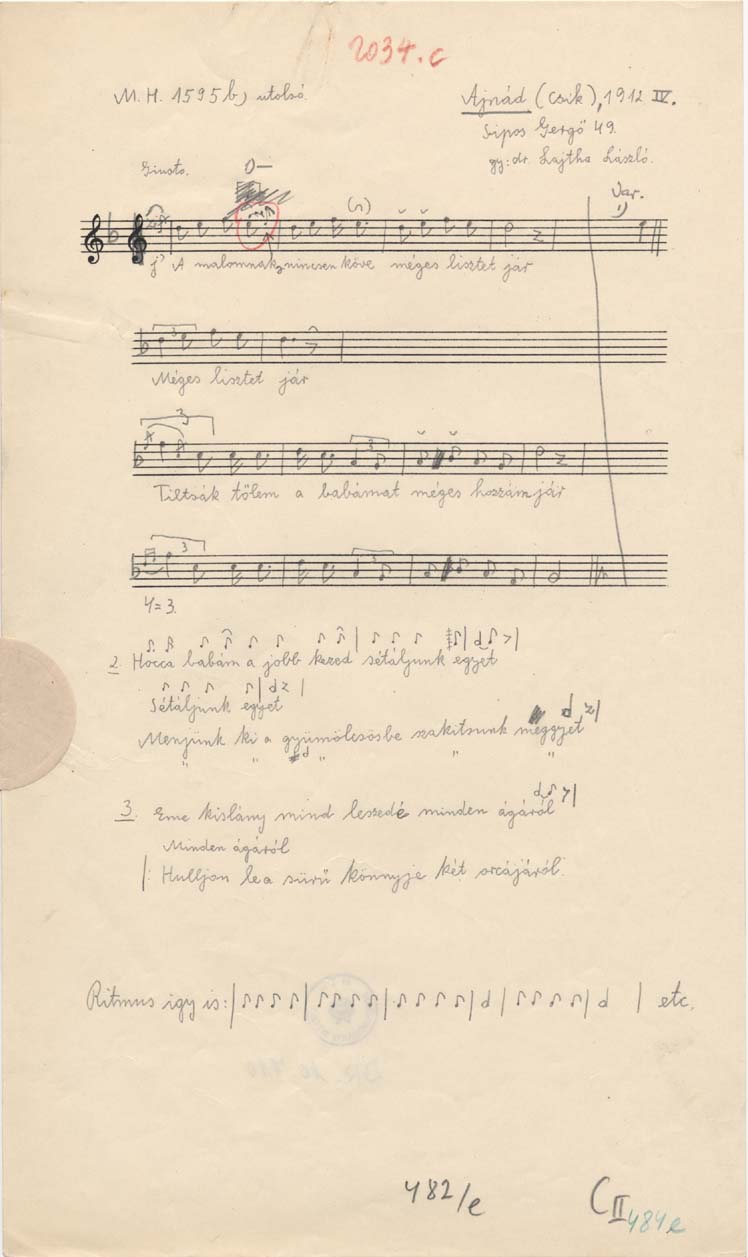 2034.c
M. H. 1595 b) utolsó
Ajnád (Csik), 1912 IV.
Sipos Gergő 49.
gy: dr. Lajtha László.
Giusto.
Var.
1)
A malomnak nincsen köve méges lisztet jár
3
Méges lisztet jár
3
3
Tiltsák tőlem a babámat méges hozzám jár
3
3
Y = 3.
2. Hocca babám a jobb kezed sétáljunk egyet
Sétáljunk egyet
Menjünk ki a gyümölcsösbe szakitsunk meggyet
" " " " "
3. Eme kislány mind leszedé minden ágáról
Minden ágáról
|: Hulljon le a sürü könnyje két orcájáról.
Ritmus igy is: etc.
482/e
C II
484e